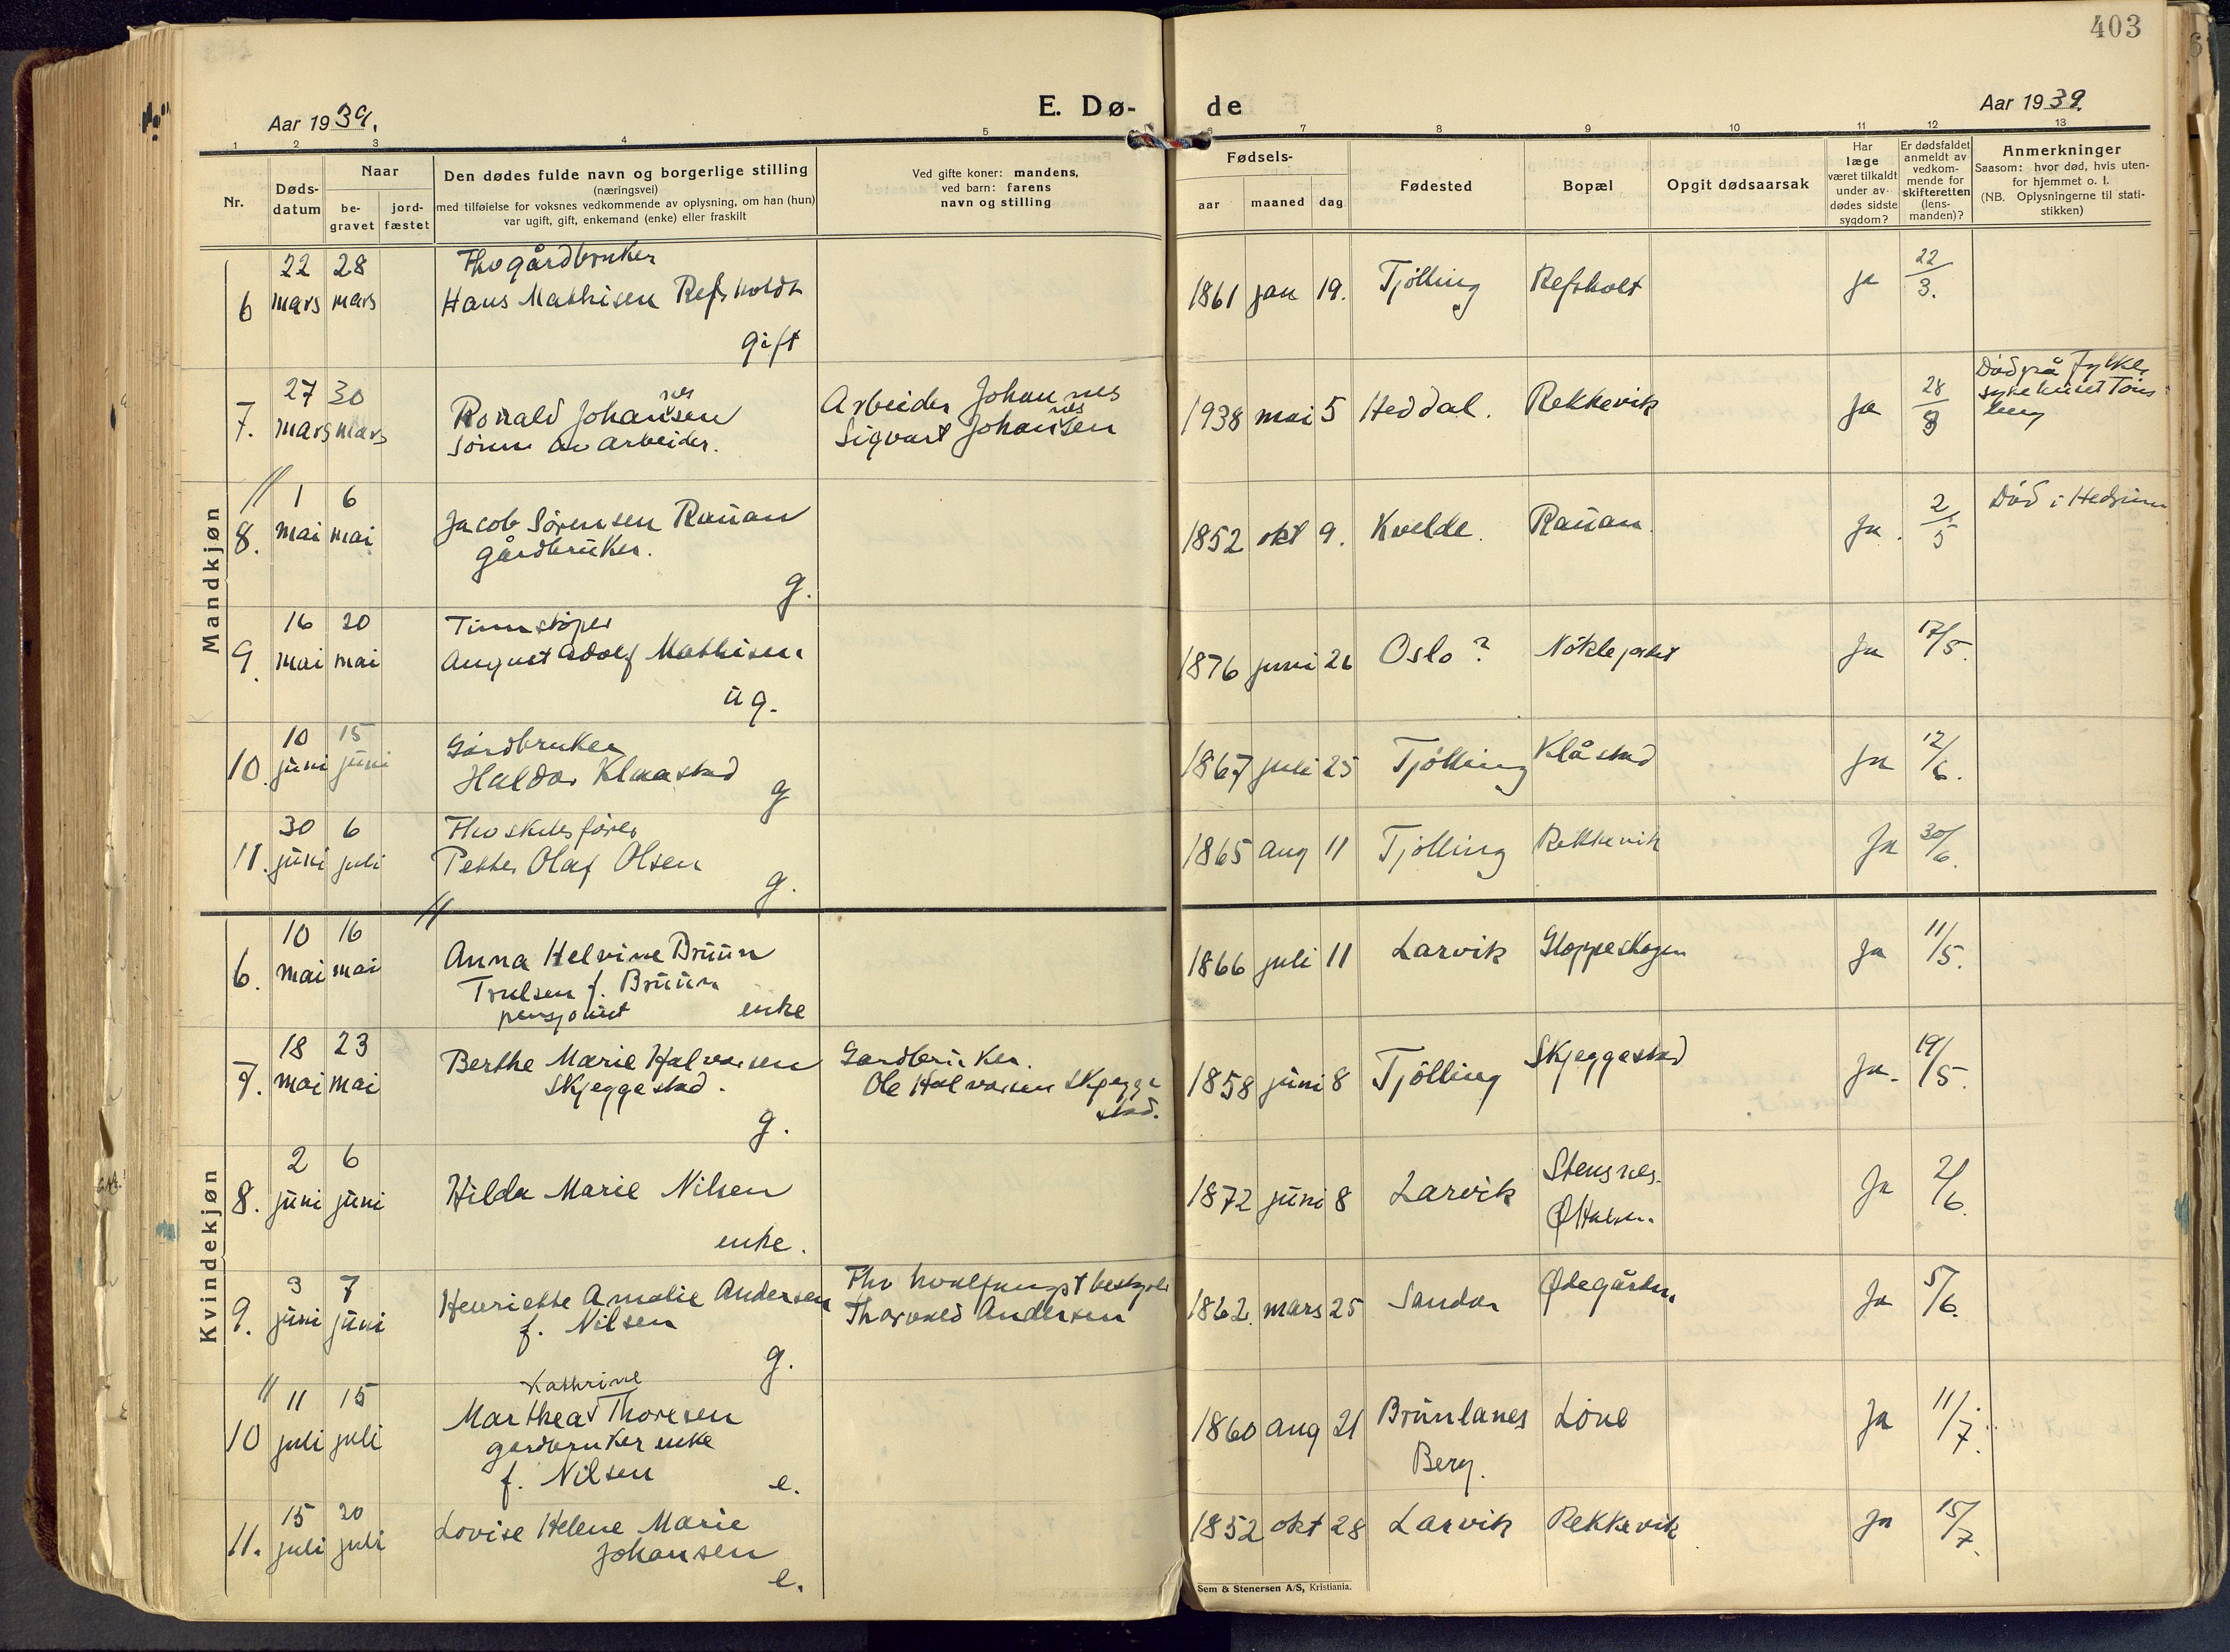 403
Aar 1939.
E. Dø-
de
Aar 1939.
1 2 3 4 5 6 7 8 9 10 11 12 13
Nr.
Døds-
datum
Naar
be-
gravet
jord-
fæstet
Den dødes fulde navn og borgerlige stilling
(næringsvei)
med tilføielse for voksnes vedkommende av oplysning, om han (hun)
var ugift, gift, enkemand (enke) eller fraskilt
Ved gifte koner: mandens,
ved barn: farens
navn og stilling
Fødsels-
aar maaned dag
Fødested
Bopæl
Opgit dødsaarsak
Har
læge
været tilkaldt
under av-
dødes sidste
sygdom?
Er dødsfaldet
anmeldt av
vedkom-
mende for
skifteretten
(lens-
manden)?
Anmerkninger
Saasom: hvor død, hvis uten-
for hjemmet o. l.
(NB. Oplysningerne til stati-
stikken)
Mandkjøn
22 28 Fhv gårdbruker
6 mars mars Hans Mathisen Refsholdt 1861 jan 19. Tjølling Refsholt ja 22/3.
gift
27 30
7. mars mars Ronald Johannessen Arbeider Johannes 1938 mai 5 Heddal. Rekkevik ja 28/3 Død på Fylkes
sønn av arbeider. Sigvart Johannessen sykehuset Töns
berg
1 6
8. mai mai Jacob Sörensen Rauan 1852 okt 9. Kvelde. Rauan. Ja. 2/5 Död i Hedrum
gårdbruker.
g.
16 20
9. mai mai August Adolf Mathisen 1876 juni 26 Oslo? Ja 17/5.
ug.
10 15 Gårdbruker
10. juni juni Haldor Klaastad 1867 juli 25 Tjölling Klåstad Ja 12/6.
g
30 6 Fhv skibsförer
11. juni juli Petter Olaf Olsen 1865 aug 11 Tjölling Rekkevik Ja 30/6.
g.
Kvindekjøn
10 16
6. mai mai Anna Helvine Bruun 1866 juli 11 Larvik Gloppeskogen Ja 11/5.
Trulsen f. Bruun
pensjonist enke
18 23
7. mai mai Berthe Marie Halvorsen Gardbruker. 1858 juni 8 Tjölling Skjeggestad Ja. 19/5.
Skjeggestad. Ole Halvorsen Skjegge
stad.
g.
2 6
8. juni juni Hilda Marie Nilsen 1872 juni 8 Larvik Stensnes. Ja 2/6.
Ø Halsen.
enke.
3 7
9. juni juni Henriette Amalie Andersen Fhv hvalfangstbestyrer 1862. mars 25 Sandar Ødegården Ja 5/6.
f. Nilsen Thorvald Andersen
g.
11 15 Kathrine
10 juli juli Marthea Thoresen 1860 aug 21 Brunlanes Löve Ja 11/7.
gardbruker enke Berg.
f. Nilsen e.
15 20
11. juli juli Lovise Helene Marie 1852 okt 28 Larvik Rekkevik Ja 15/7.
Johansen
e.
Sem & Stenersen A/S, Kristiania.